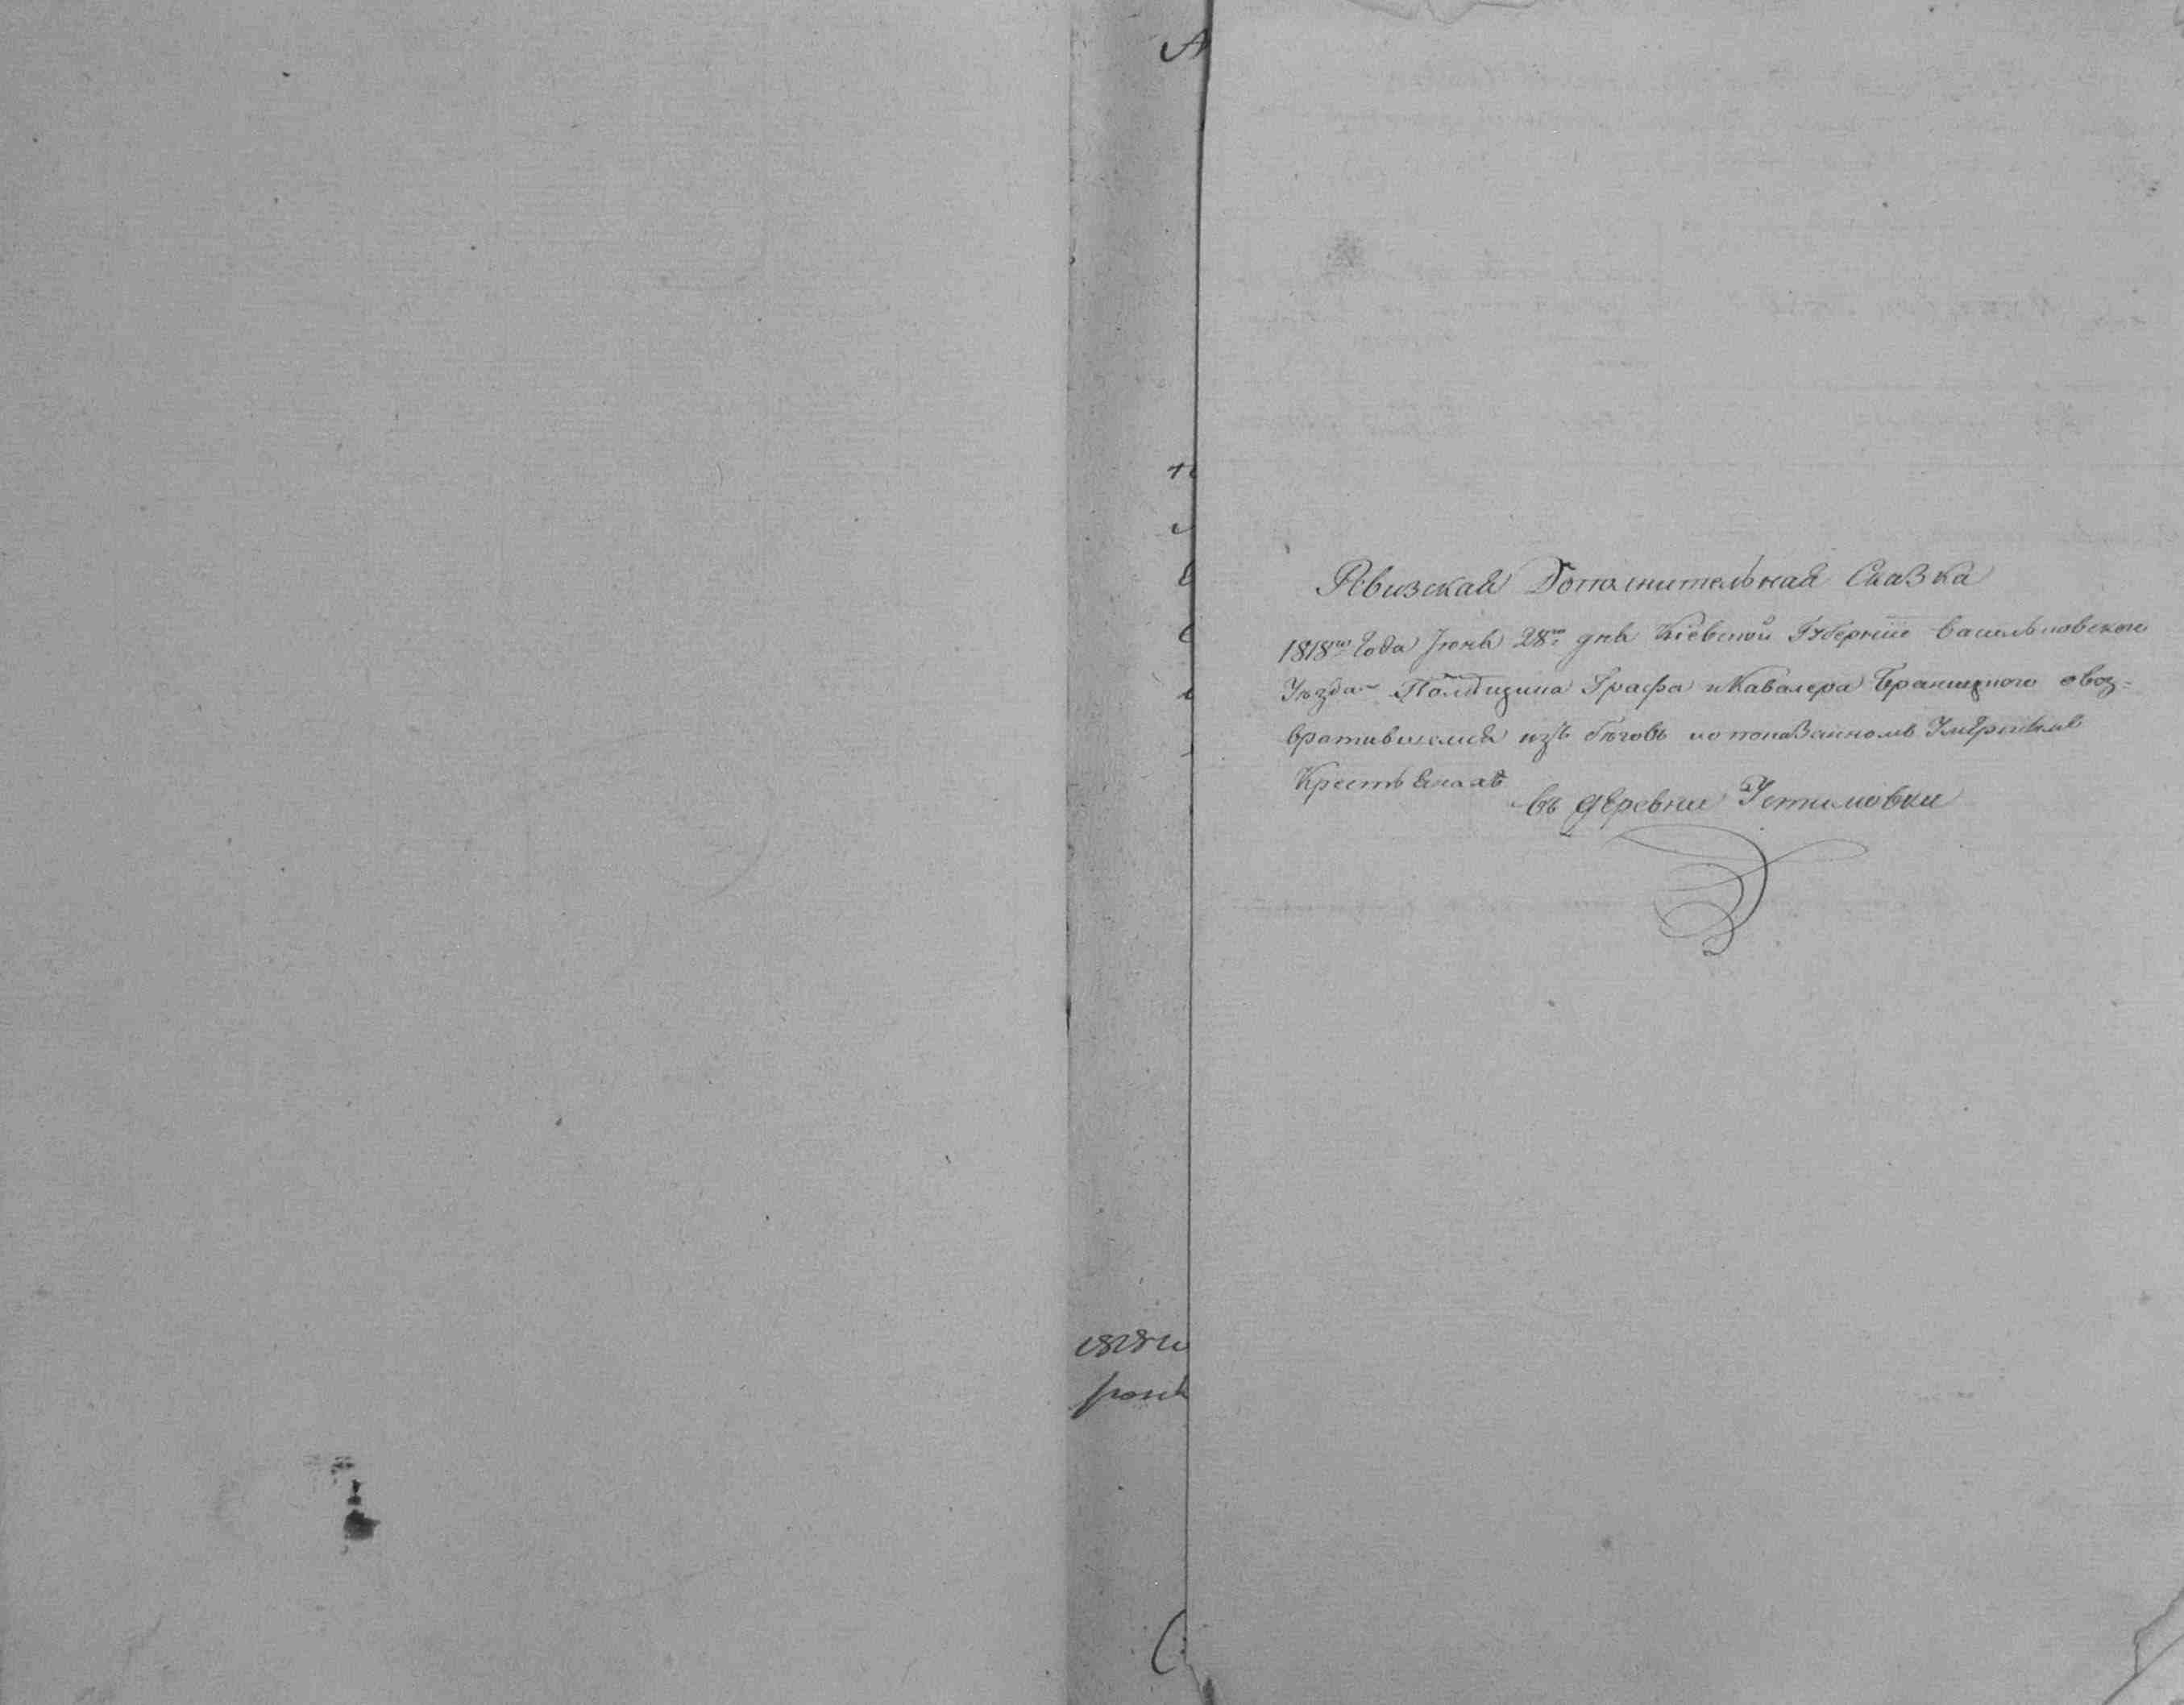 Ревизская Дополнительная Сказка
1818го Года Июня 28го дня Кіевской Губерніи Васильковского
Уѣзда Помѣщика Графа и Кавалера Браницкого о воз=
вратившемся изъ бѣговъ но показанномъ Умершимъ
Крестьянахъ
въ деревни Устимовки